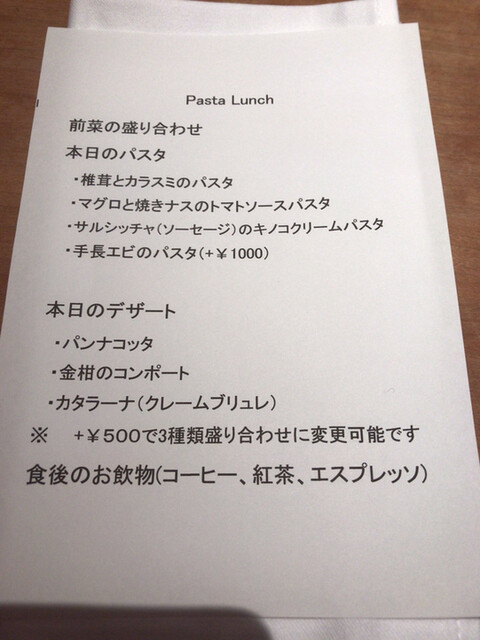 Pasta Lunch
前菜の盛り合わせ
本日のパスタ
・椎茸とカラスミのパスタ
・マグロと焼きナスのトマトソースパスタ
・サルシッチャ(ソーセージ)のキノコクリームパスタ
・手長エビのパスタ(+¥1000)
本日のデザート
・パンナコッタ
・金柑のコンポート
・カタラーナ(クレームブリュレ)
※ +¥500で3種類盛り合わせに変更可能です
食後のお飲物(コーヒー、紅茶、エスプレッソ)